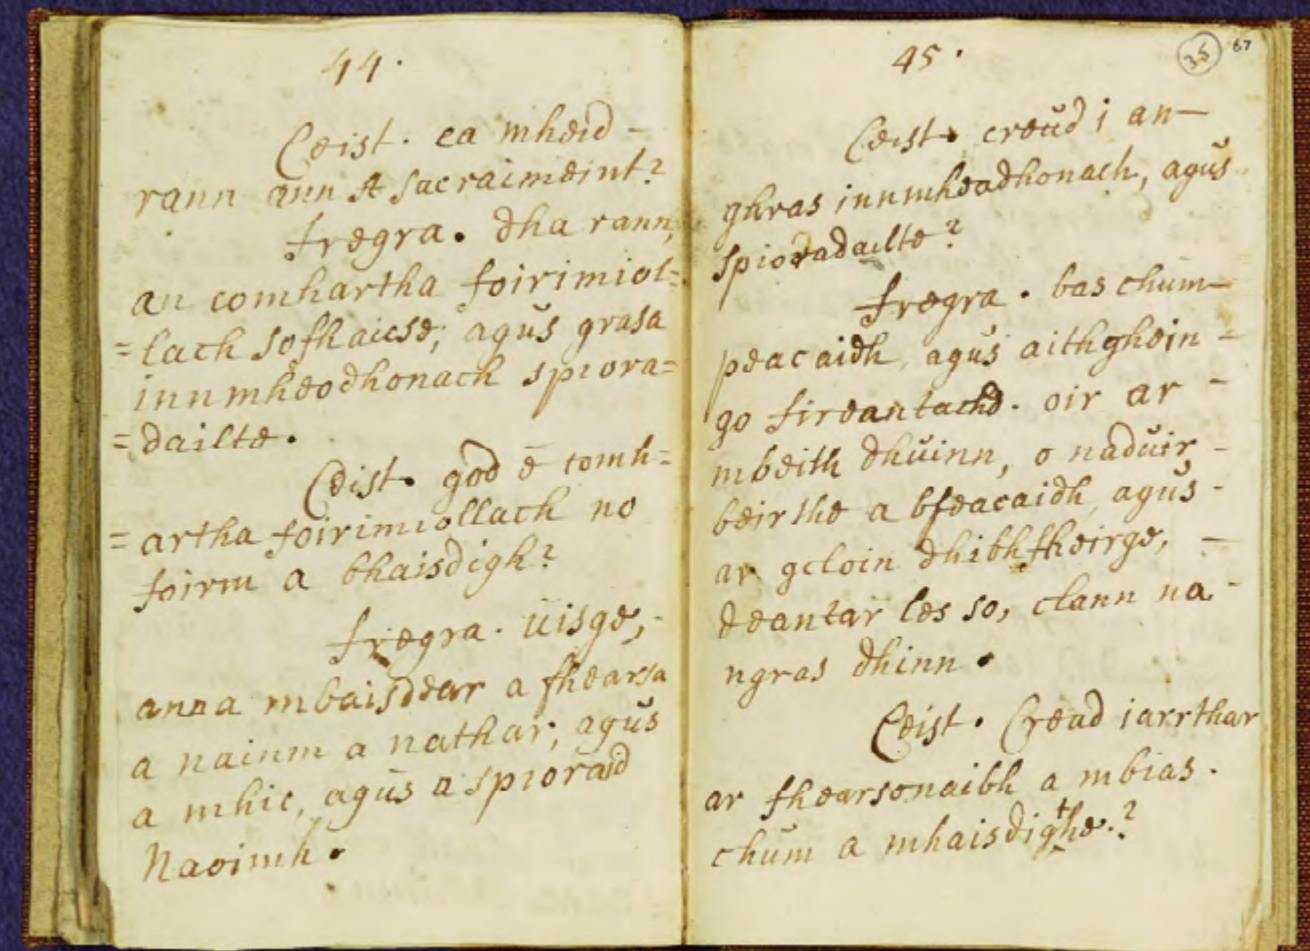 44.
Ceist. ca mheid -
rann ann A sacraimeint?
fregra. dha rann,
an comhartha foirimiol=
=lach sofhaicse; agus grasa
innmheodhonach spiora=
=dailte.
Ceist. god ē comh=
=artha foirimiollach no
foirm a bhaisdigh?
fregra. uisge,
anna mbaisdear a fhearsa
a nainm a nathar, agus
a mhic, agus a spioraid
Naoimh.
45.
35 67
Ceist. creud i an—
ghras innmheadhonach, agus
spioradailte?
fregra. bas chum—
peacaidh, agus aithghein -
go fireantachd. oir ar -
mbeith dhuinn, o naduir -
beirthe a bfeacaidh, agus -
ar gcloin dhibhfheirge, —
deantar les so, clann na -
ngras dhinn.
Ceist. Cread iarrthar
ar fhearsonaibh a mbias.
chum a mhaisdigthe.?